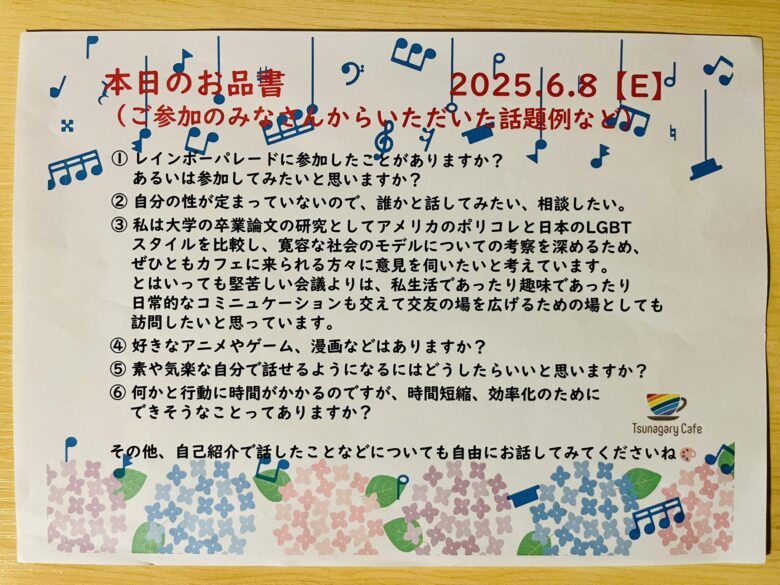 本日のお品書 2025.6.8【E】
（ご参加のみなさんからいただいた話題例など）
① レインボーパレードに参加したことがありますか？
あるいは参加してみたいと思いますか？
② 自分の性が定まっていないので、誰かと話してみたい、相談したい。
③ 私は大学の卒業論文の研究としてアメリカのポリコレと日本のLGBT
スタイルを比較し、寛容な社会のモデルについての考察を深めるため、
ぜひともカフェに来られる方々に意見を伺いたいと考えています。
とはいっても堅苦しい会議よりは、私生活であったり趣味であったり
日常的なコミニュケーションも交えて交友の場を広げるための場としても
訪問したいと思っています。
④ 好きなアニメやゲーム、漫画などはありますか？
⑤ 素や気楽な自分で話せるようになるにはどうしたらいいと思いますか？
⑥ 何かと行動に時間がかかるのですが、時間短縮、効率化のために
できそうなことってありますか？
Tsunagary Cafe
その他、自己紹介で話したことなどについても自由にお話してみてくださいね